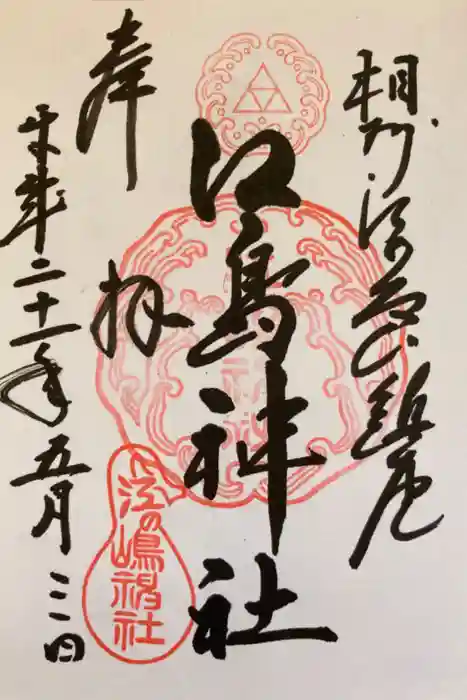 相州江の島鎮座
江島神社
奉拝
平成二十一年五月三一日
江の嶋神社